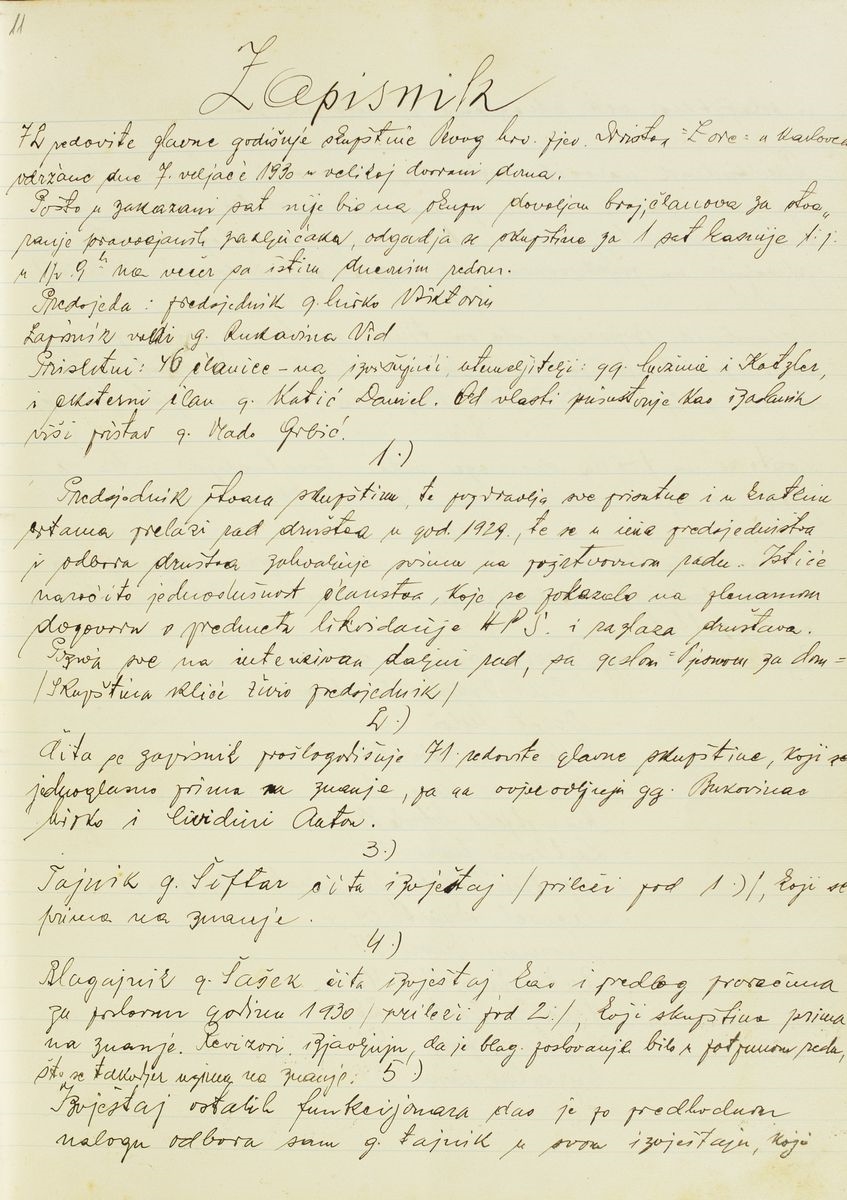 11
Zapisnik
72 redovite glavne godišnje skupštine Prvog hrv. pjev. Društva "Zora" u Karlovcu
održane dne 7. veljače 1930 u velikoj dvorani doma.
Pošto u zakazani sat nije bio na okupu dovoljan broj članova za stva„
ranje pravovaljanih zaključaka, odgadja se skupština za 1 sat kasnije t.j.
u 1/2 9 h na večer sa istim dnevnim redom.
Predsjeda : predsjednik g. Mirko Viktorin
Zapisnik vodi g. Rukavina Vid
Prisutni : 46 članice – na izvišujući, utemeljitelji : gg. i Katzler,
i eksterni član g. Katić Daniel. Od vlasti prisustvuje kao izaslanik
viši pristav g. Vlado Grbić.
1.)
Predsjednik otvara skupštinu, te pozdravlja sve prisutne i u kratkim
crtama prelazi rad društva u god. 1929., te se u ime predsjedništva
i odbora društva zahvaljuje svima na požrtvovnom radu. Ističe
naročito jednodušnost članstva, koje se pokazalo na plenarnom
dogovoru o predmetu likvidacije H P S. i razlaza društava.
Poziva sve na intenzivan daljni rad, sa geslom "Pjesmom za dom"
/ Skupština kliče živio predsjednik /
2.)
Čita se zapisnik prošlogodišnje 71. redovite glavne skupštine, koji se
jednoglasno prima na znanje, pa ga ovjerovljuju gg. Bukovinac
Mirko i Cividini Anton.
3.)
Tajnik g. Šiftar čita izvještaj / priléži pod 1.) /, koji se
prima na znanje.
4.)
Blagajnik g. Šašek čita izvještaj kao i predlog proračuna
za poslovnu godinu 1930 / priléži pod 2. /, koji skupština prima
na znanje. Revizori izjavljuju, da je blag. poslovanje bilo u potpunom redu,
što se takodjer uzima na znanje. 5)
Izvještaj ostalih funkcijonara dao je po predhodnom
nalogu odbora sam g. tajnik u svom izvještaju, koji